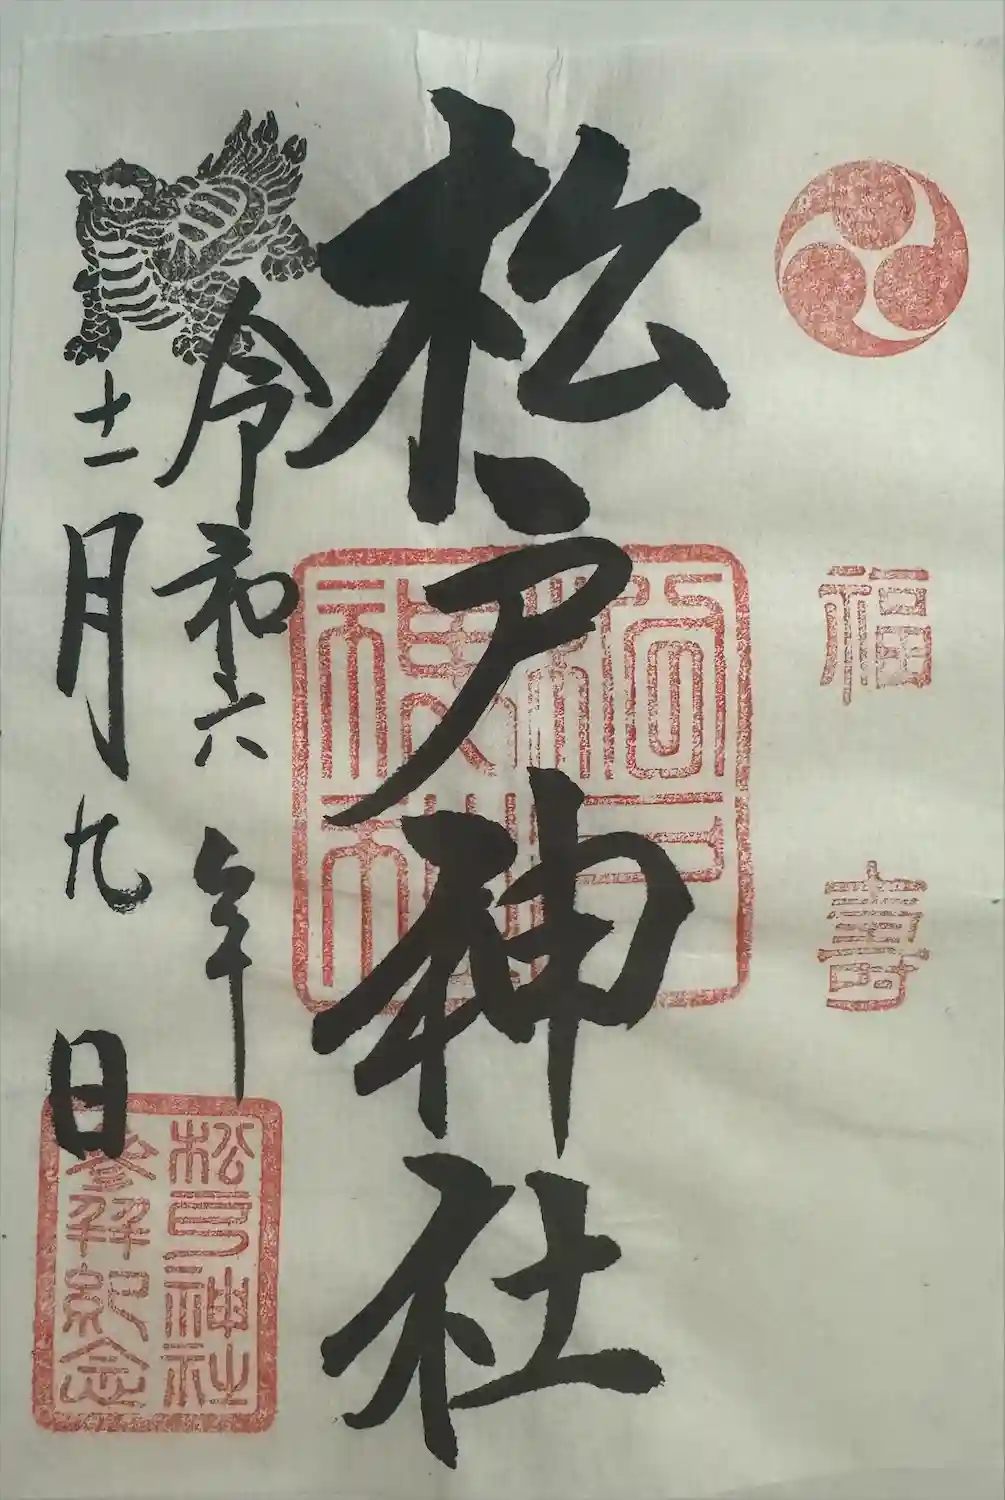 福寿
松戸神社
松戸神社
令和六年
十一月九日
松戸神社
参拝紀念